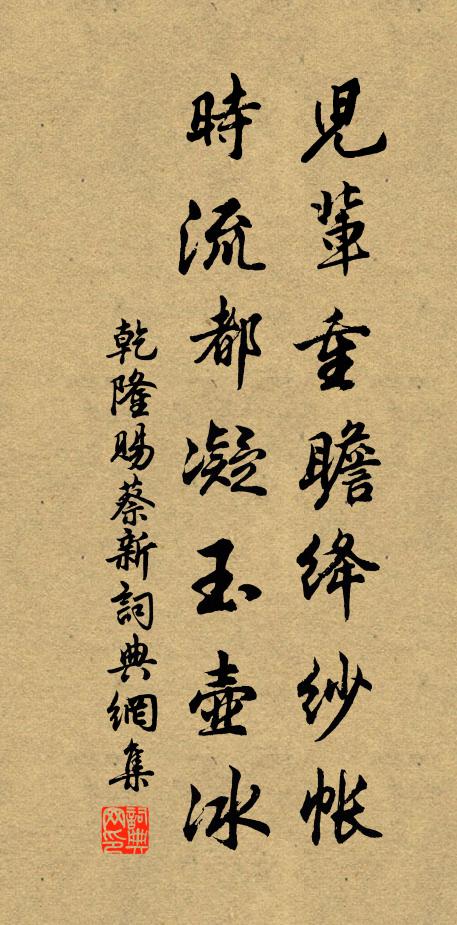 兒輩重瞻絳紗帳
時流都凝玉壺冰
乾隆賜蔡新詞典網集
詞典网印